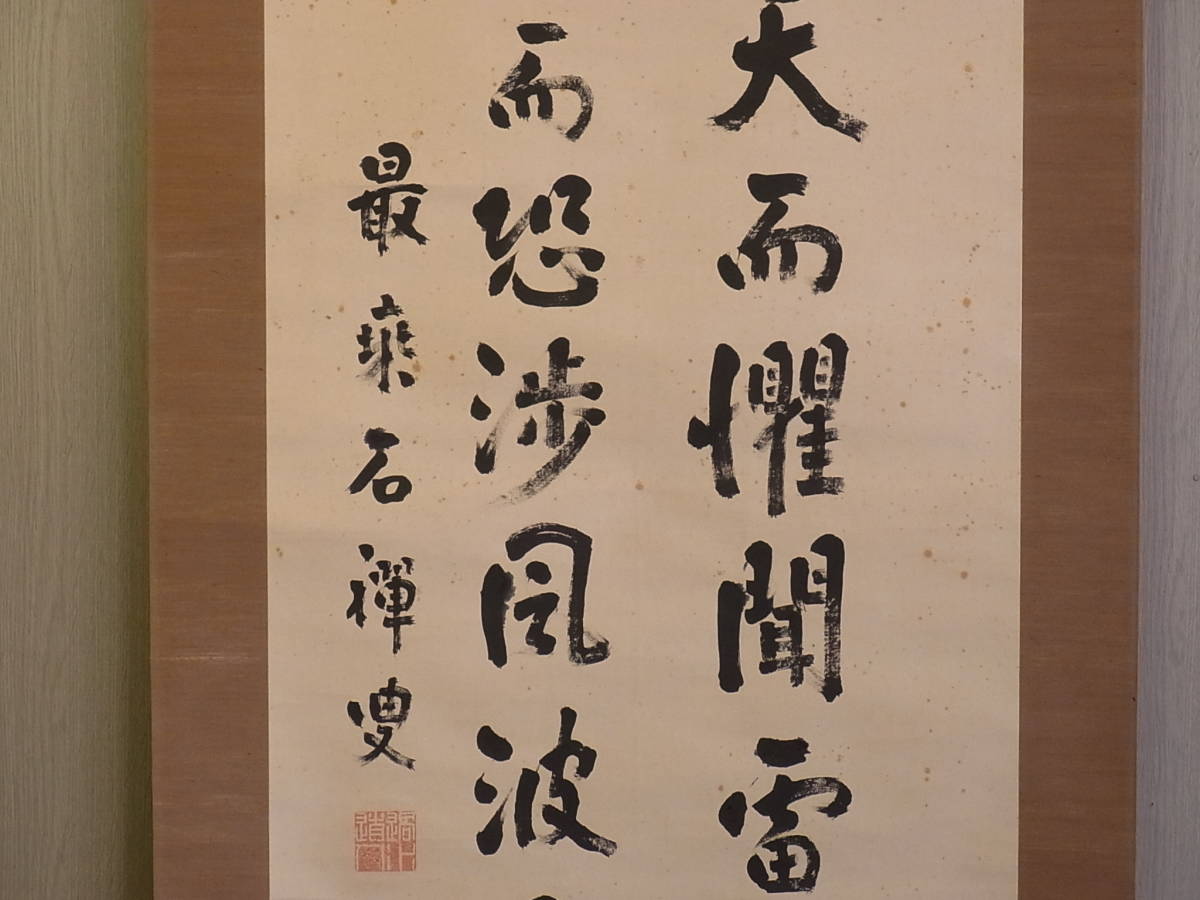 天而懼聞雷
而恐涉风波
最乘石禪叟